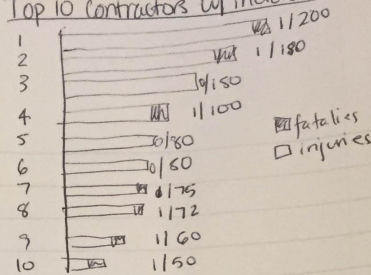 Top 10 Contractors w/
1 1/200
2 1/180
3 0/150
4 1/100
5 0/80
6 0/80
7 1/75
8 1/72
9 1/60
10 1/50
fatalies
injuries